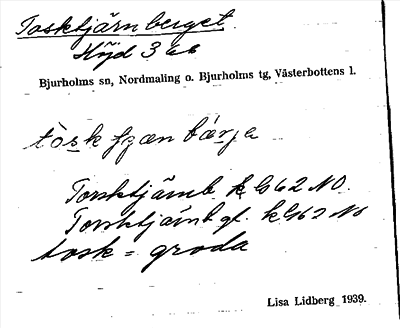 Tosktjärnberget
Höjd 366
Bjurholms sn, Nordmaling o. Bjurholms tg, Västerbottens l.
tòsk fȷæn bærȷa
Torsktjärnb. kG62 NO.
Torsktjärnb gl. kG62 No
tosk = groda
Lisa Lidberg 1939.